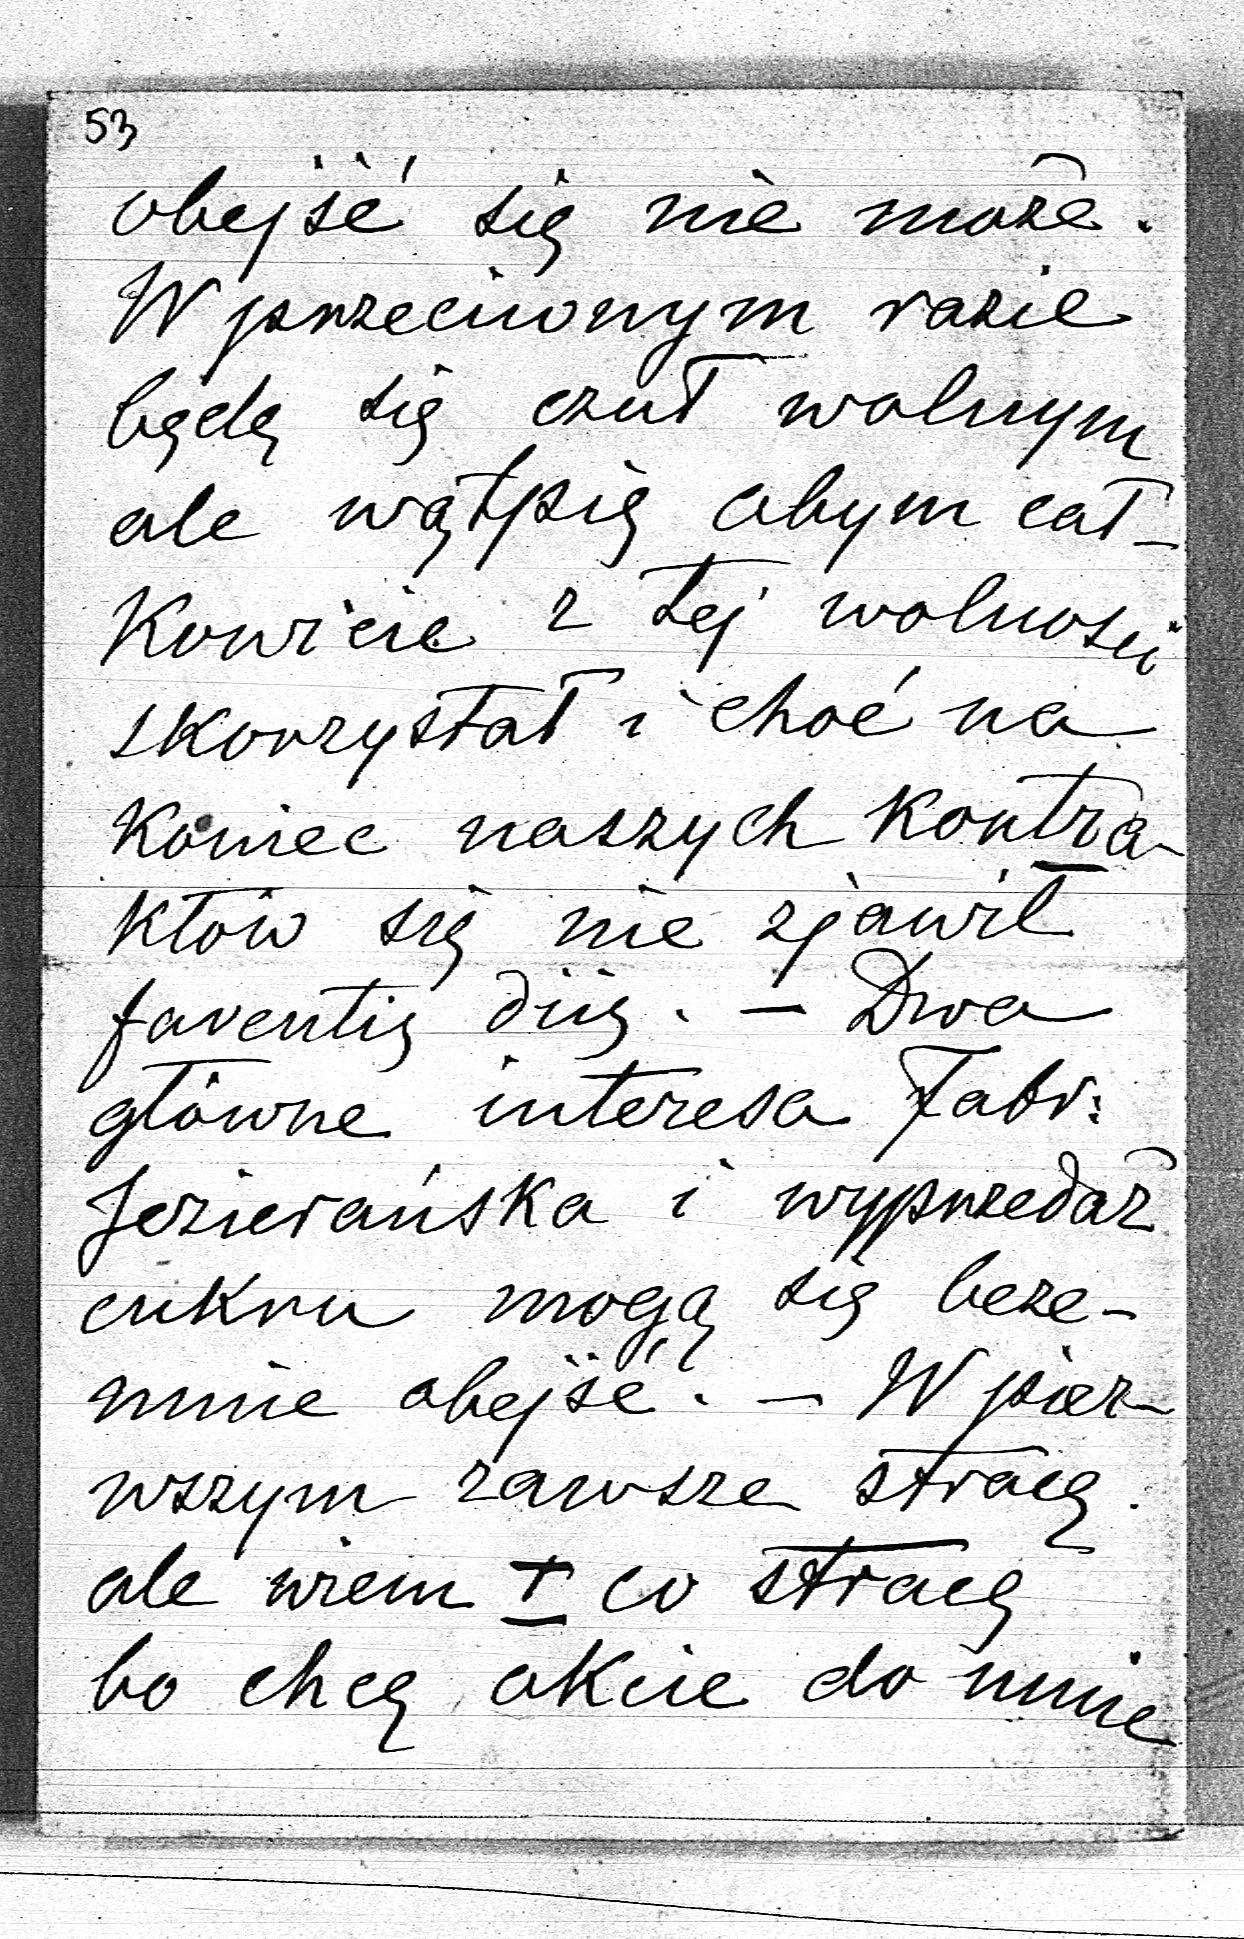 53
obejść się nie może.
W przeciwnym razie
będę się czuł wolnym
ale wątpię abym cał-
kowicie z tej wolności
skorzystał i choć na
koniec naszych kontra-
któw się nie zjawił
faventis diis. — Dwa
główne interesa Fabr:
Jezierańska i wyprzedaż
cukru mogą się beze-
mnie obejść. — W pier-
wszym zawsze stracę
ale wiem co stracę
bo chcę akcie do mnie